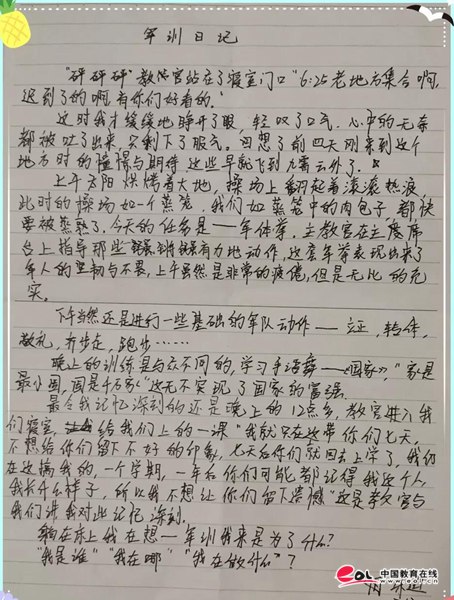 军训日记
"砰砰砰"教官站在了寝室门口"6:25老地方集合啊,
迟到了的啊,有你们好看的."
这时我才缓缓地睁开了眼,轻叹了口气.心中的无奈
都被吐了出来,只剩下了服气.回想了前四天刚来到这个
地方时的憧憬与期待,这些早就飞到九霄云外了.
上午太阳烘烤着大地,操场上翻起着滚滚热浪
此时的操场如一个蒸笼,我们如蒸笼中的肉包子,都快
要被蒸熟了.今天的任务是——军体拳.主教官在主席
台上指导那些铿锵有力地动作,这套军拳表现出来了
军人的坚韧与不畏,上午虽然是非常的疲倦,但是无比的充
实.
下午当然还是进行一些基础的军队动作——立正,转体,
敬礼,齐步走,跑步……
晚上的训练是与众不同的,学习手语舞——《国家》,"家是
最小国,国是千万家"这无不实现了国家的富强.
最令我记忆深刻的还是晚上的12点多,教官进入我
们寝室,给我们上的一课"我就只在这带你们七天,
不想给你们留下不好的印象,七天后你们就回去上学了,我仍
在这搞我的,一个学期,一年后你们可能都记得我这个人,
我长什么样子,所以我不想让你们留下遗憾"这是教官与
我们讲我对此记忆深刻.
躺在床上我在想—军训我来是为了什么?
"我是谁""我在哪""我在做什么"?
eol.cn 中国教育在线